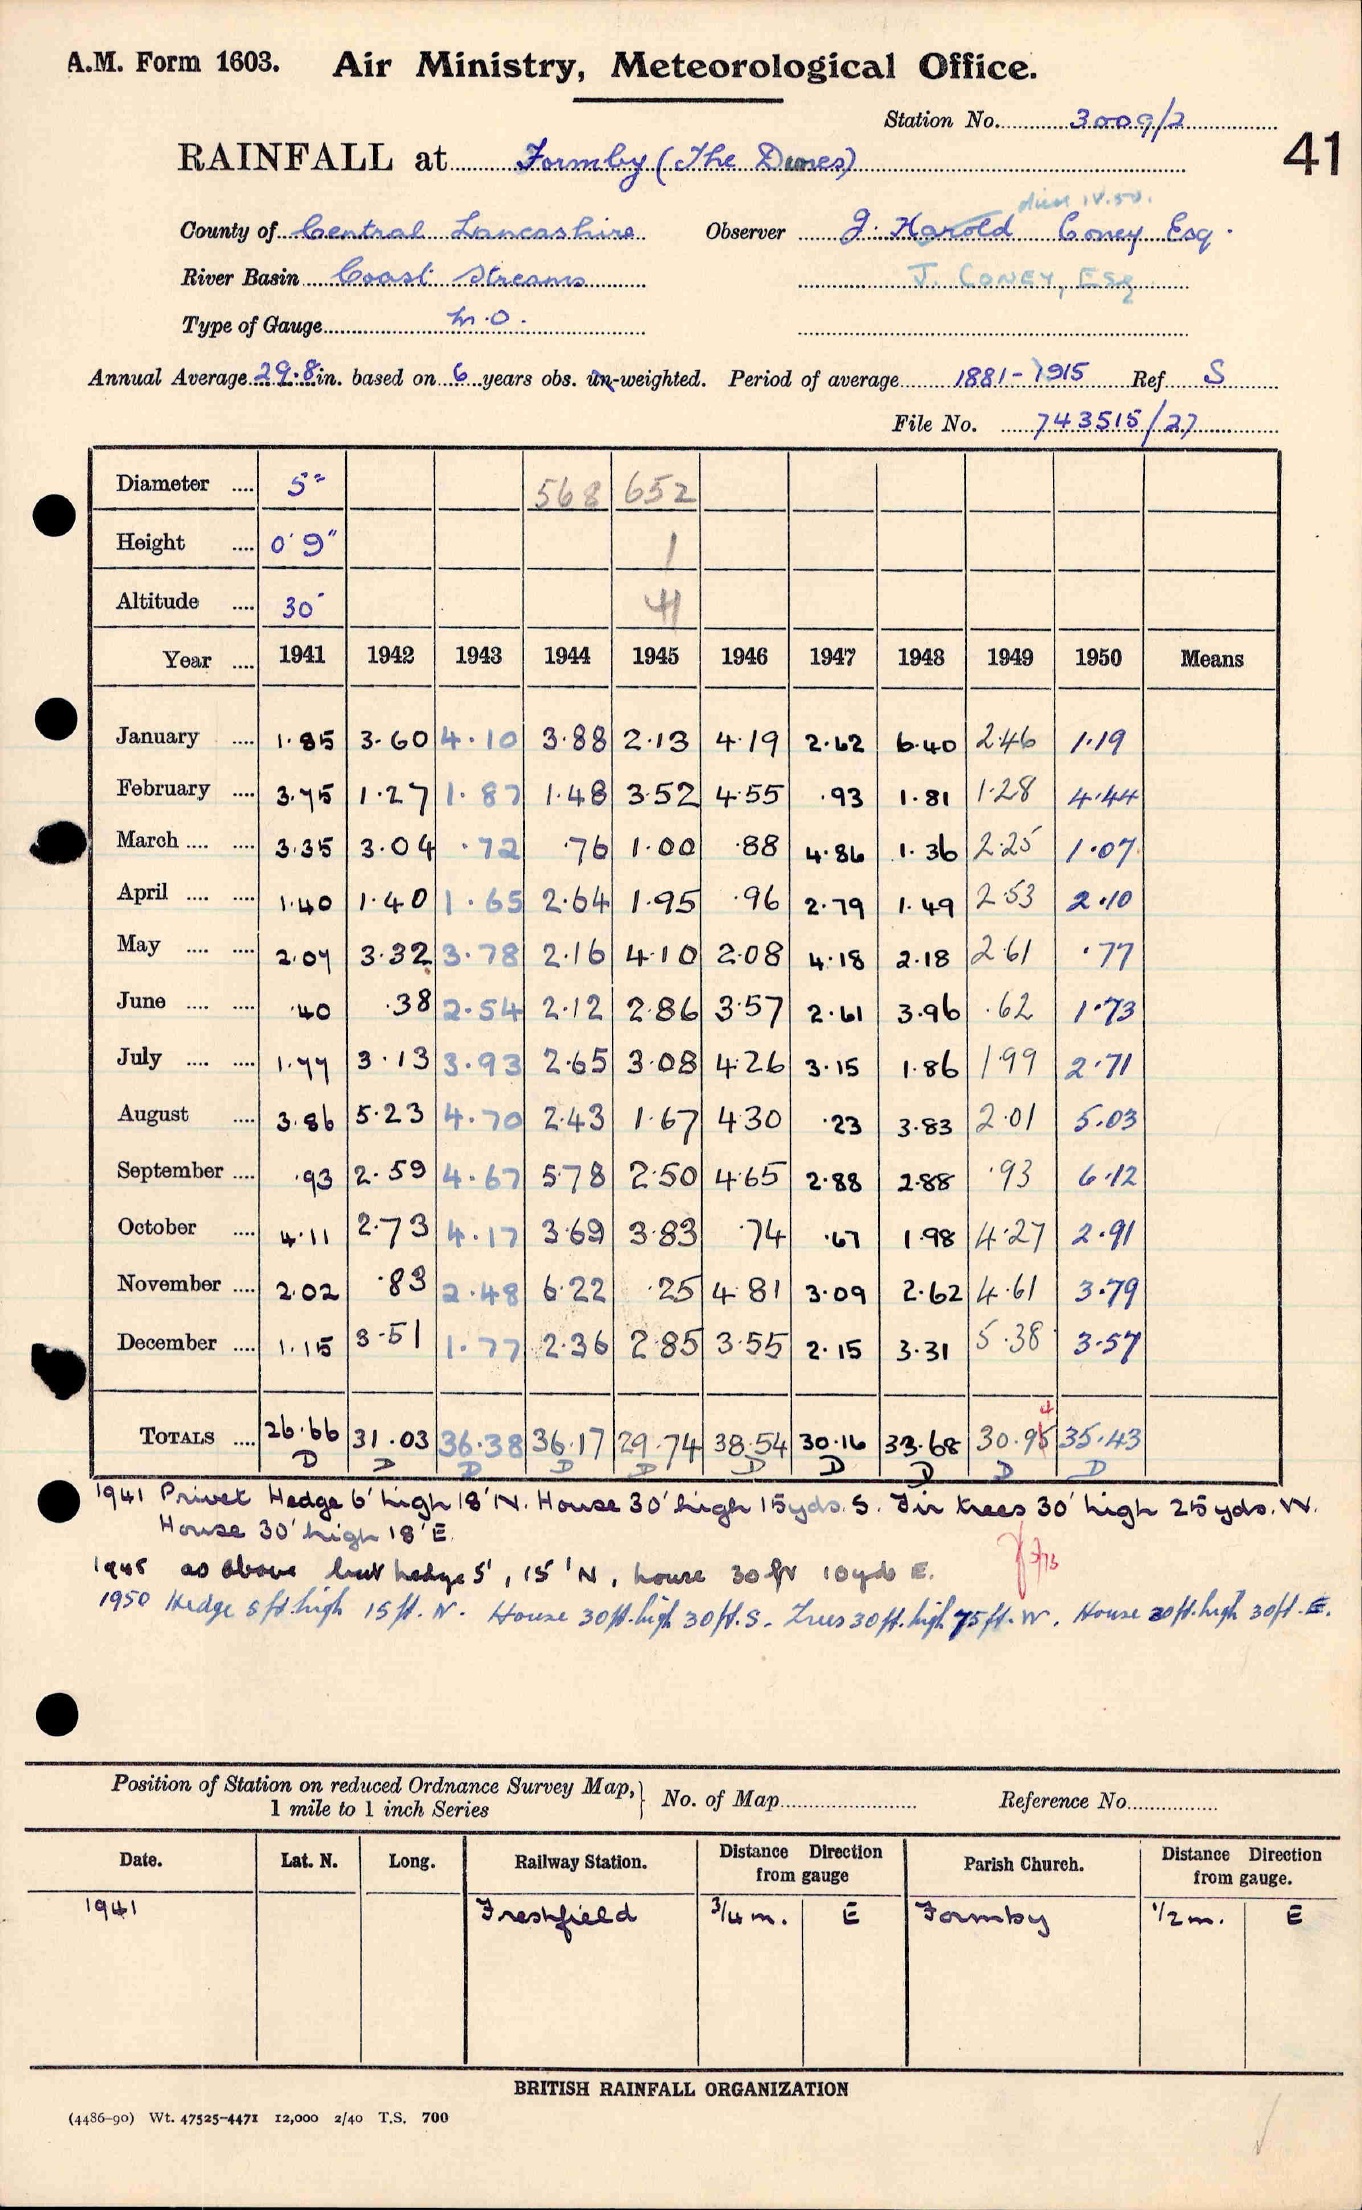 A.M. Form 1603. Air Ministry, Meteorological Office.
Station No. 3009/2
41
RAINFALL at Formby (The Dunes)
died IV.50.
County of Central Lancashire Observer J. Harold Coney Esq.
River Basin Coast Streams J. CONEY, ESq
Type of Gauge M.O.
Annual Average 29.8 in. based on 6 years obs. un-weighted. Period of average 1881-1915 Ref S
File No. 743515/27
Diameter .... 5" 568 652
Height .... 0' 9" 1
Altitude .... 30' 41
Year .... 1941 1942 1943 1944 1945 1946 1947 1948 1949 1950 Means
January .... 1.85 3.60 4.10 3.88 2.13 4.19 2.62 6.40 2.46 1.19
February .... 3.75 1.27 1.87 1.48 3.52 4.55 .93 1.81 1.28 4.44
March .... .... 3.35 3.04 .72 .76 1.00 .88 4.86 1.36 2.25 1.07
April .... .... 1.40 1.40 1.65 2.64 1.95 .96 2.79 1.49 2.53 2.10
May .... .... 2.07 3.32 3.78 2.16 4.10 2.08 4.18 2.18 2.61 .77
June .... .... .40 .38 2.54 2.12 2.86 3.57 2.61 3.96 .62 1.73
July .... .... 1.77 3.13 3.93 2.65 3.08 4.26 3.15 1.86 1.99 2.71
August .... 3.86 5.23 4.70 2.43 1.67 4.30 .23 3.83 2.01 5.03
September .... .93 2.59 4.67 5.78 2.50 4.65 2.88 2.88 .93 6.12
October .... 4.11 2.73 4.17 3.69 3.83 .74 .67 1.98 4.27 2.91
November .... 2.02 .83 2.48 6.22 .25 4.81 3.09 2.62 4.61 3.79
December .... 1.15 3.51 1.77 2.36 2.85 3.55 2.15 3.31 5.38 3.57
4
TOTALS .... 26.66 31.03 36.38 36.17 29.74 38.54 30.16 33.68 30.95 35.43
D D D D D D D D D D
1941 Privet Hedge 6' high 18' N. House 30' high 15 yds. S. Fir trees 30' high 25 yds. W.
House 30' high 18' E.
1945 as above but hedge 5', 15' N, house 30 ft 10 yds E.
1950 Hedge 5 ft. high 15 ft. N. House 30 ft. high 30 ft. S. Trees 30 ft. high 75 ft. W. House 30 ft. high 30 ft. E.
Position of Station on reduced Ordnance Survey Map, 1 mile to 1 inch Series } No. of Map Reference No.
Date. Lat. N. Long. Railway Station. Distance Direction from gauge Parish Church. Distance Direction from gauge.
1941 Freshfield 3/4 m. E Formby 1/2 m. E
BRITISH RAINFALL ORGANIZATION
(4486-90) Wt. 47525-4471 12,000 2/40 T.S. 700